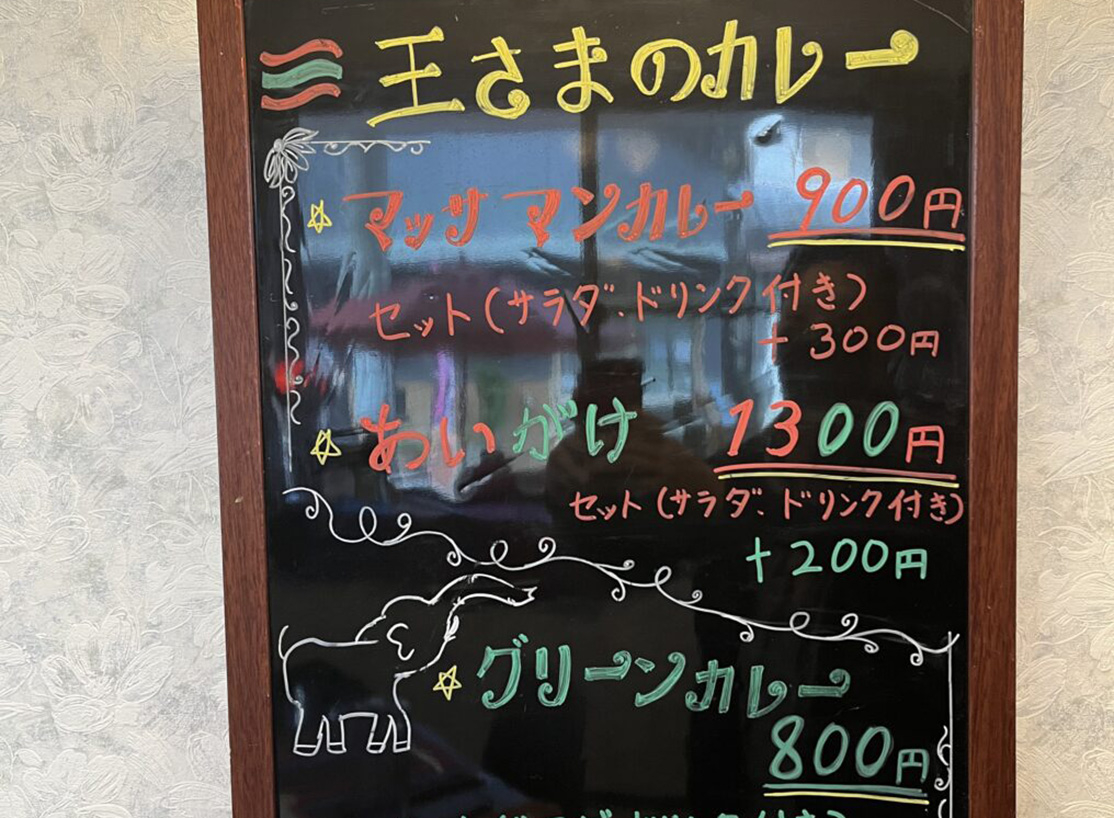 王さまのカレー
マッサマンカレー 900円
セット(サラダ、ドリンク付き)
+300円
あいがけ 1300円
セット(サラダ、ドリンク付き)
+200円
グリーンカレー
800円